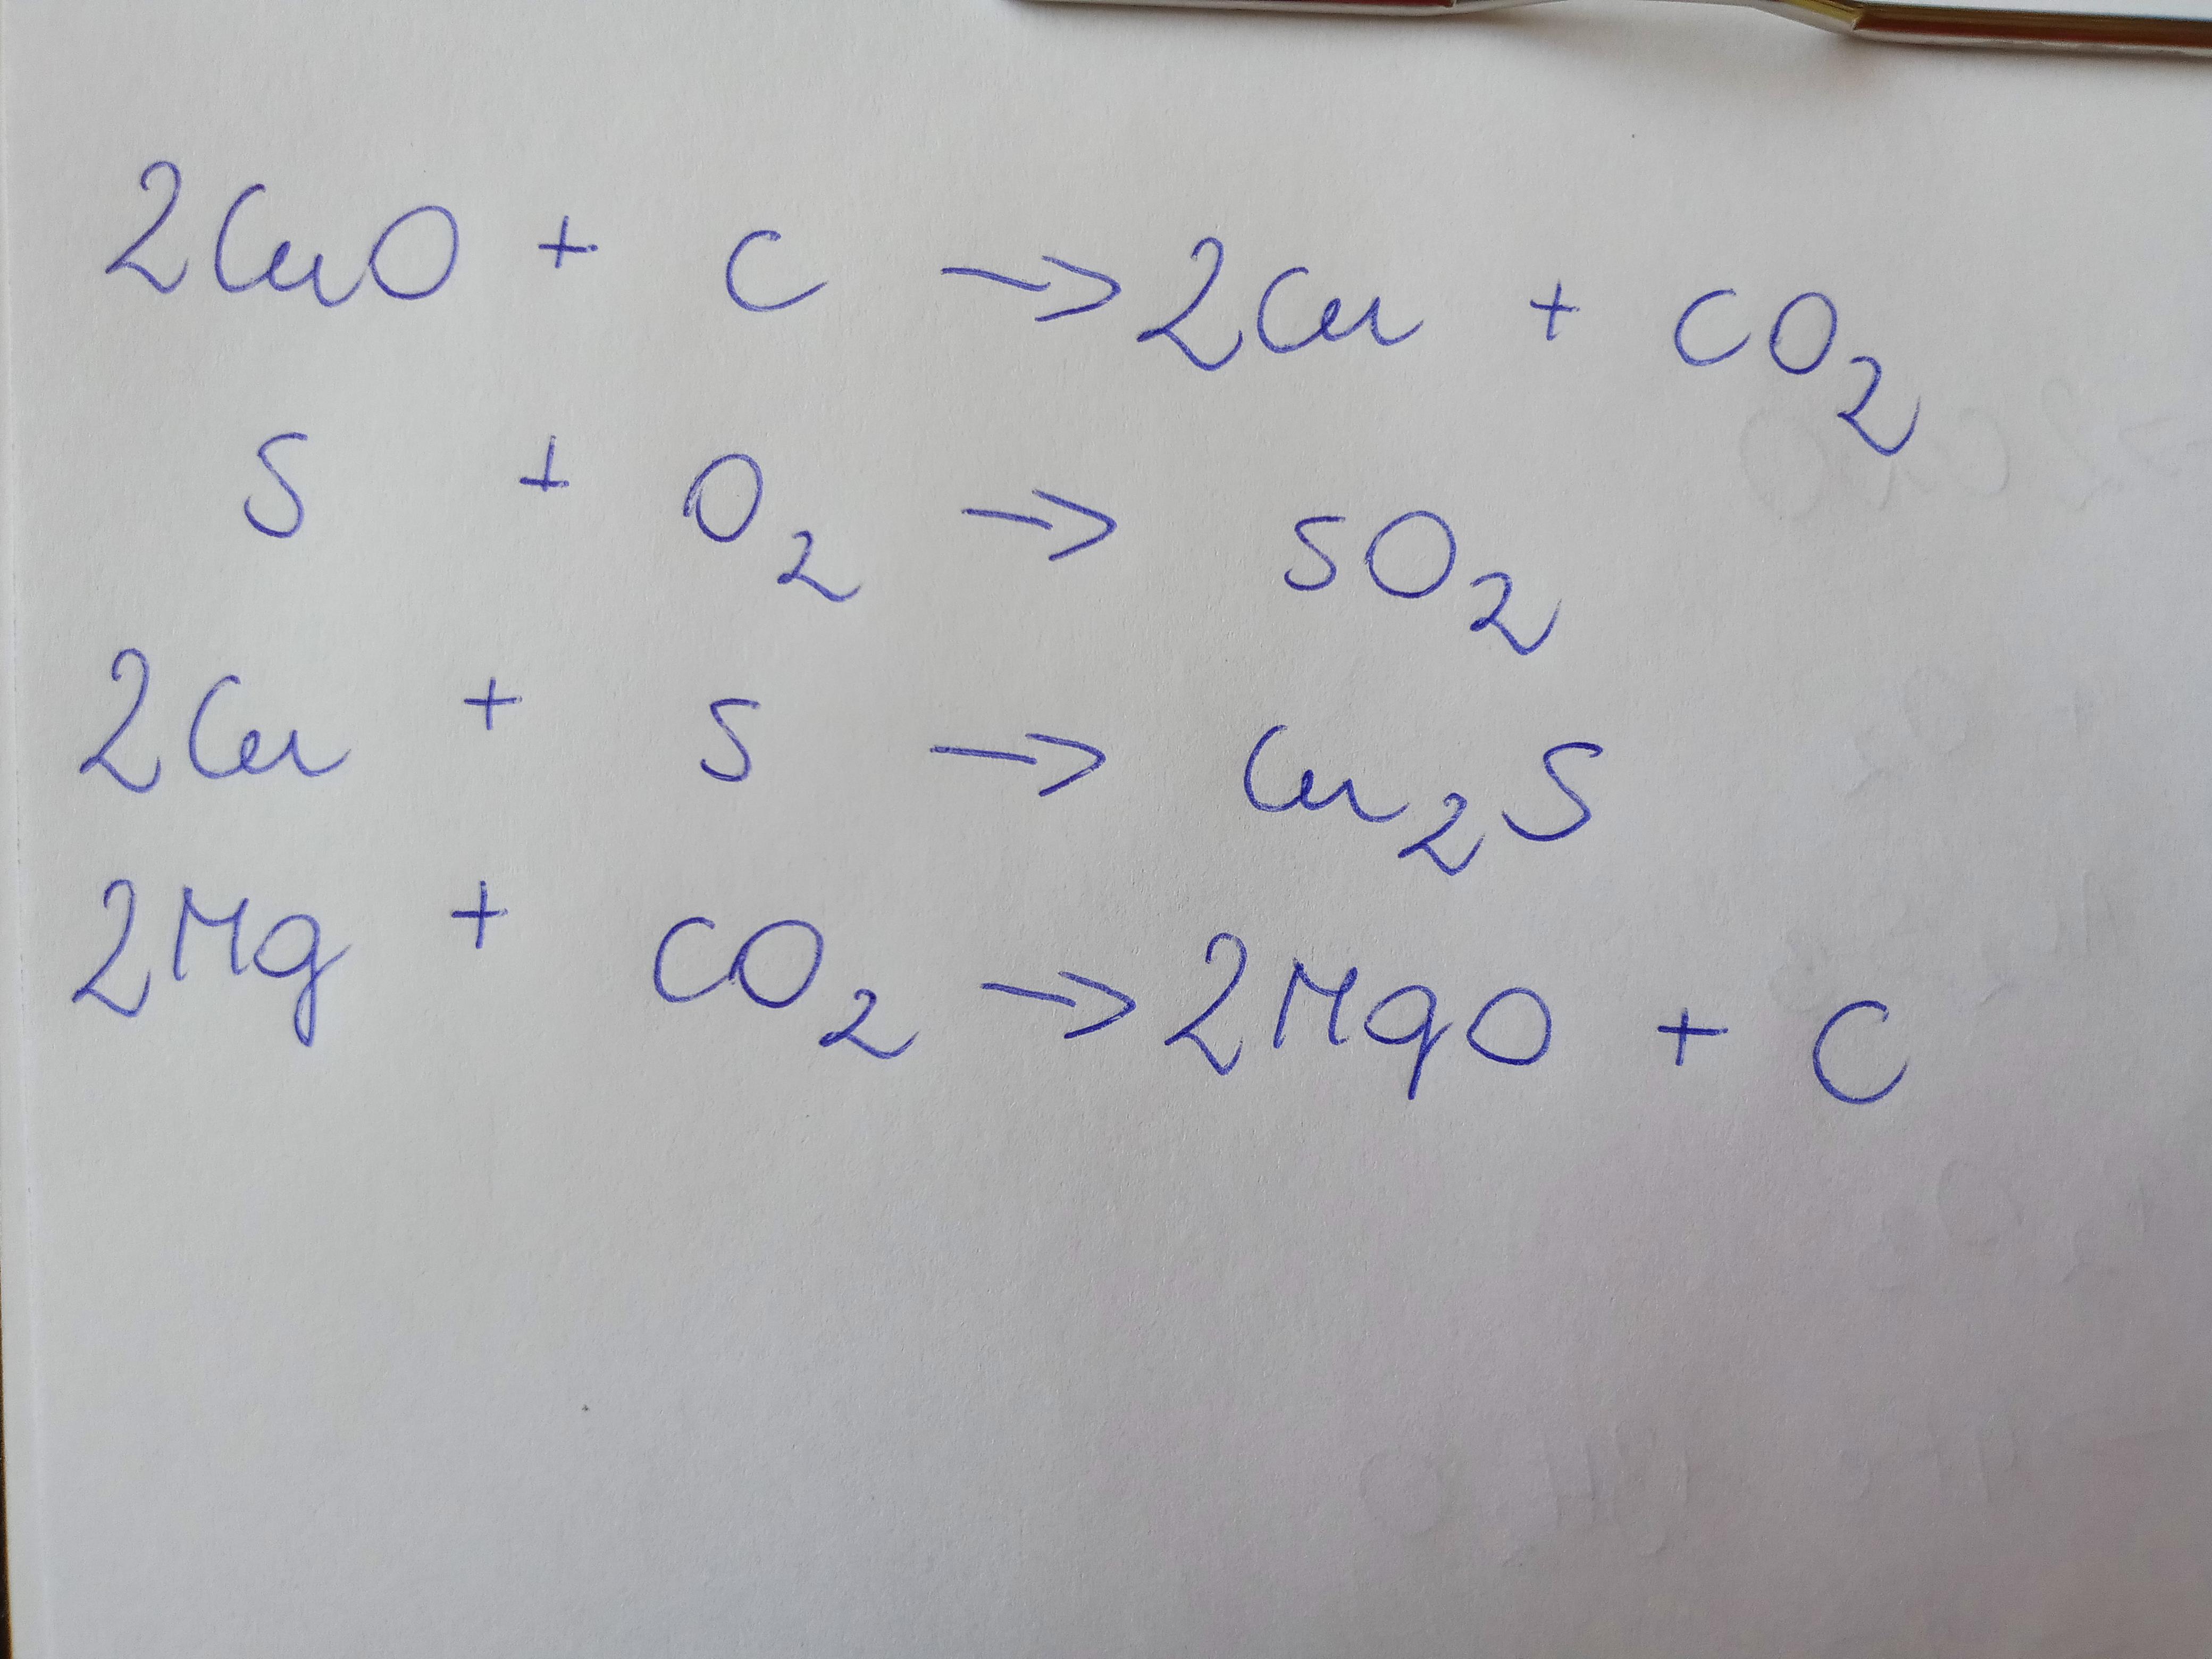 2CuO + C → 2Cu + CO₂
S + O₂ → SO₂
2Cu + S → Cu₂S
2Mg + CO₂ → 2MgO + C